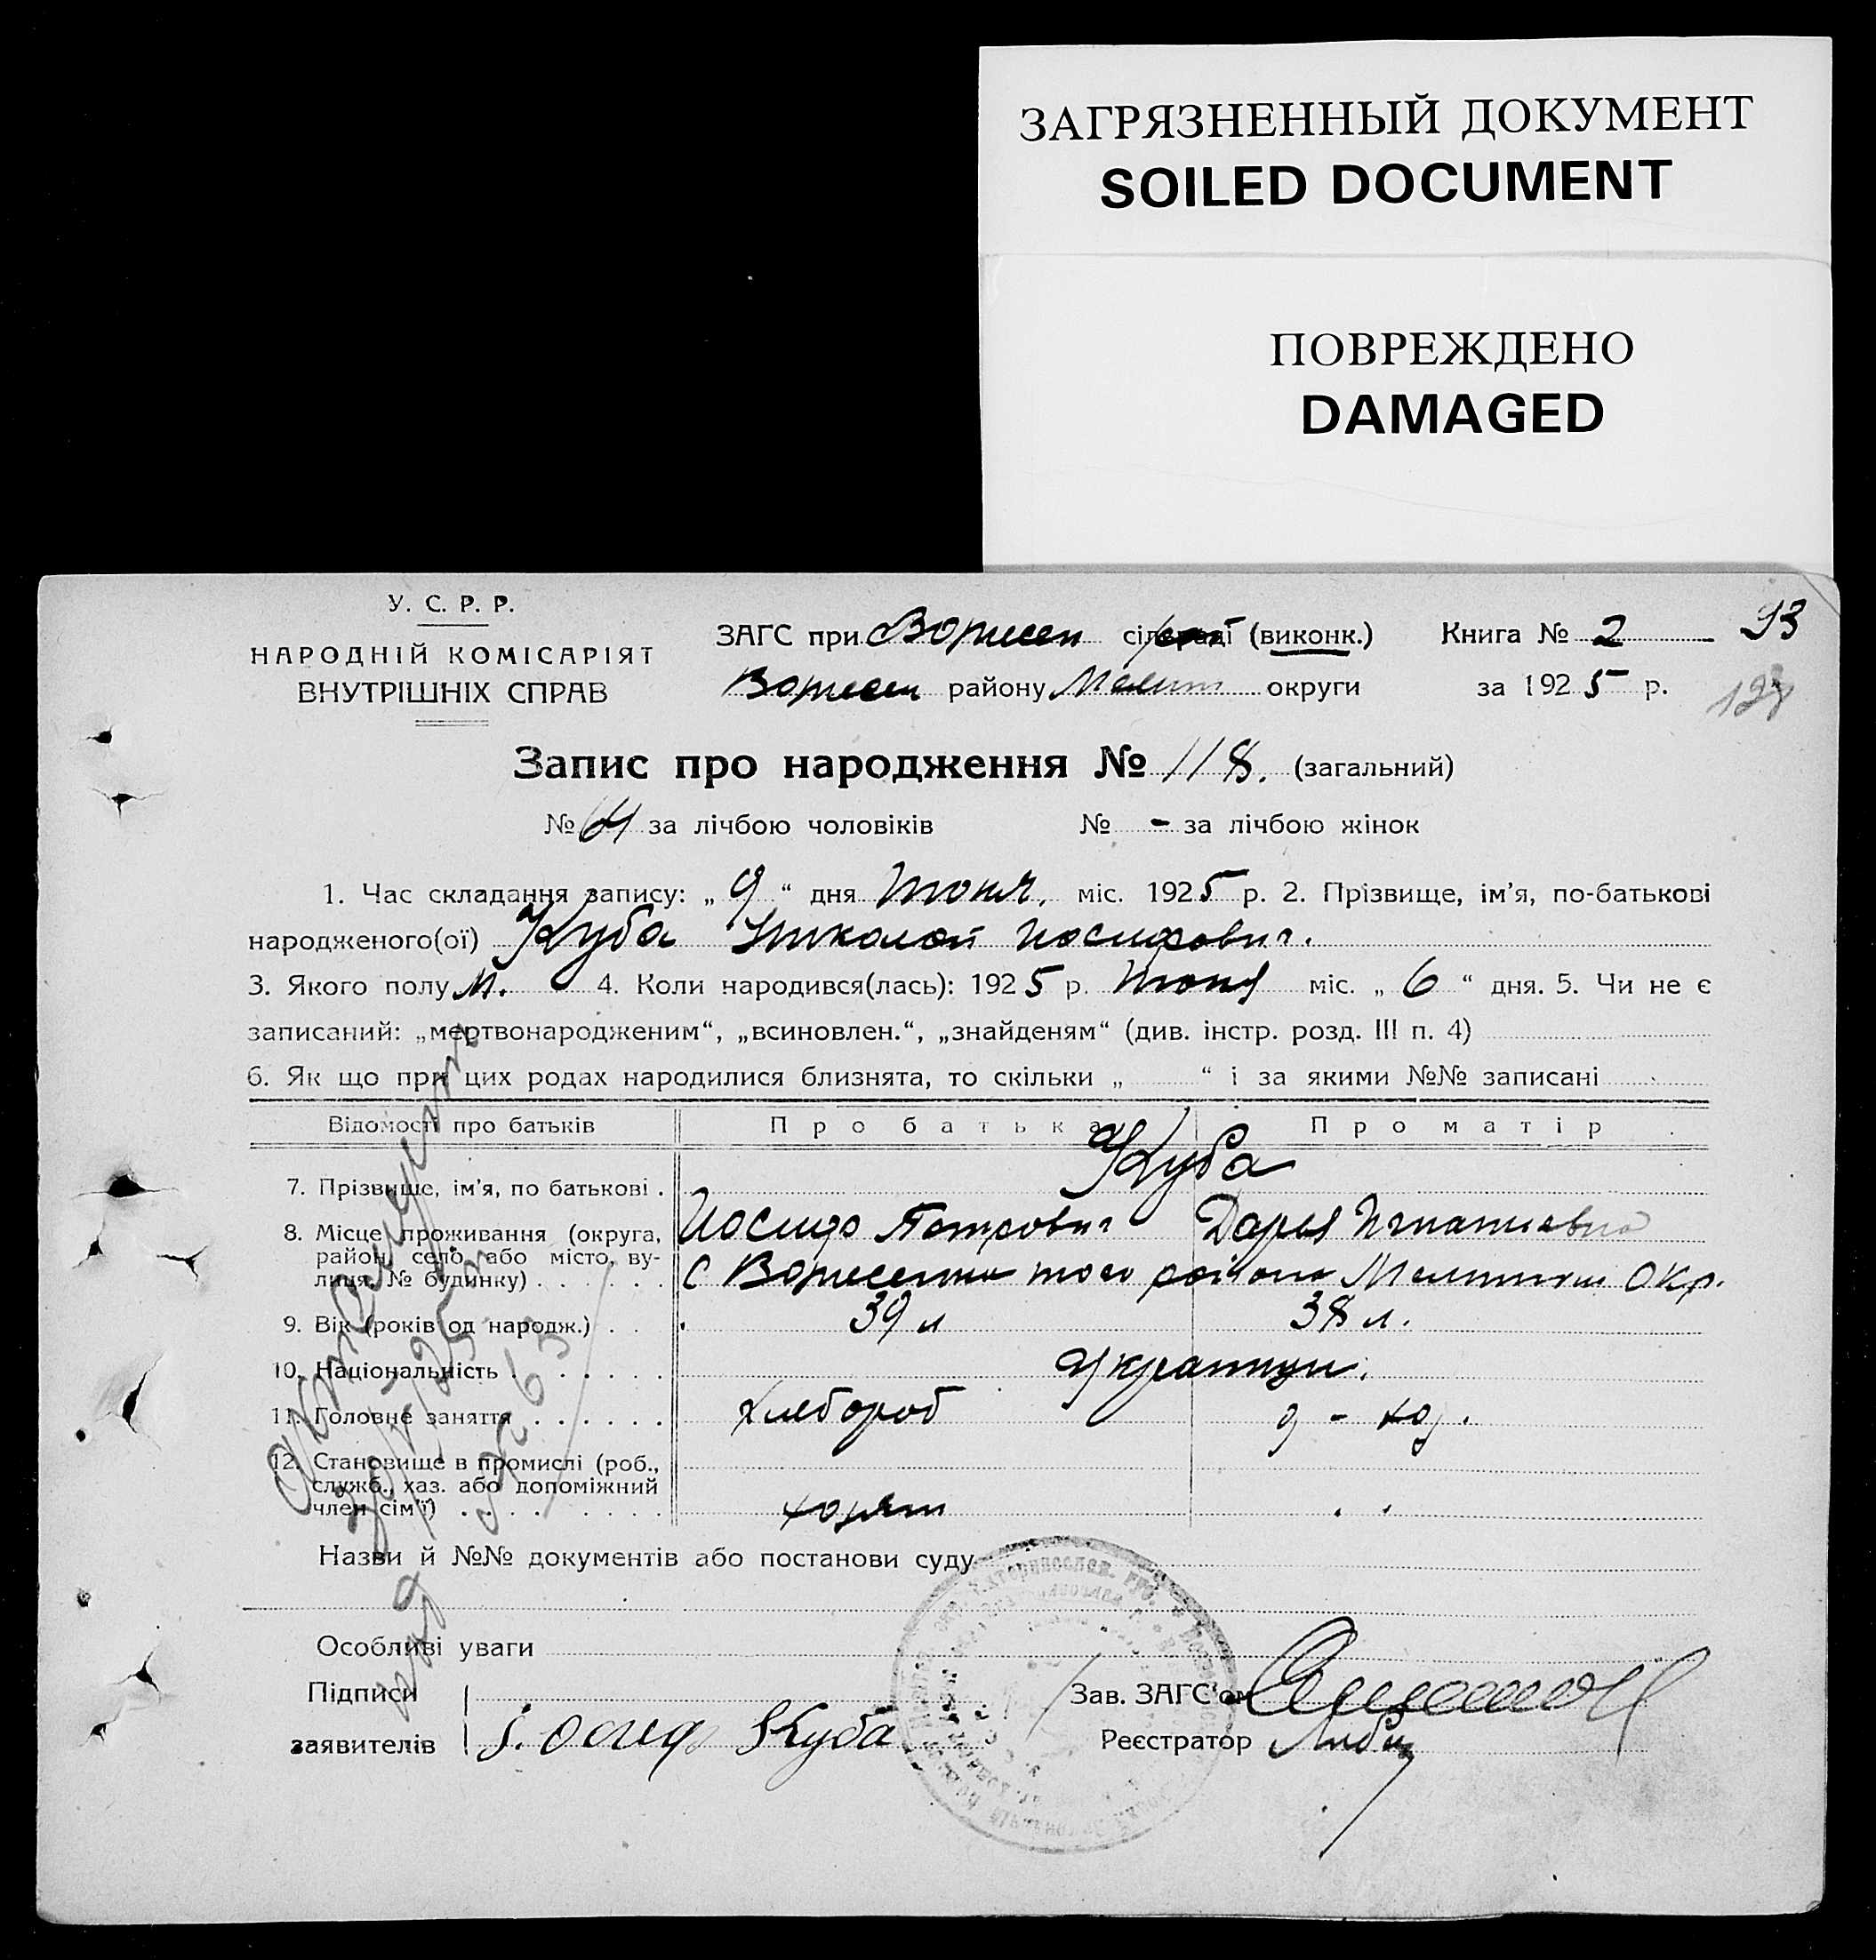 ЗАГРЯЗНЕННЫЙ ДОКУМЕНТ
SOILED DOCUMENT
ПОВРЕЖДЕНО
DAMAGED
У. С. Р. Р.
НАРОДНІЙ КОМІСАРІЯТ
ВНУТРІШНІХ СПРАВ
ЗАГС при Вознесен сільраді (виконк.) Книга № 2 93
Вознесен району Мелит округи за 1925 р.
Запис про народження № 118. (загальний)
№ 64 за лічбою чоловіків № - за лічбою жінок
1. Час складання запису: „ 9 “ дня Июня. міс. 1925 р. 2. Прізвище, ім’я, по-батькові
народженого(ої) Куба Николай Иосифович.
3. Якого полу м. 4. Коли народився(лась): 1925 р. Июня міс. „ 6 “ дня. 5. Чи не є
записаний: „мертвонародженим“, „всиновлен.“, „знайденям“ (див. інстр. розд. III п. 4)
6. Як що при цих родах народилися близнята, то скільки „ “ і за якими №№ записані
Відомості про батьків Про батька Про матір
Куба
7. Прізвище, ім’я, по батькові . Иосиф Петрович Дарья Игнатиевна
8. Місце проживання (округа,
район, село або місто, ву-
лиця, № будинку) . . . . . . С Вознесенка того района Мелитип Окр.
9. Вік (років од народж.) . . . 39 л 38 л.
10. Національність . . . . . . . Украинци.
11. Головне заняття . . . . . . Хлебороб
12. Становище в промислі (роб.,
служб., хаз. або допоміжний
член сім’ї) . . . . . . . . . хозяин
Назви й №№ документів або постанови суду
Особливі уваги
Підписи
заявителів Куба
Зав. ЗАГС’ом
Реєстратор